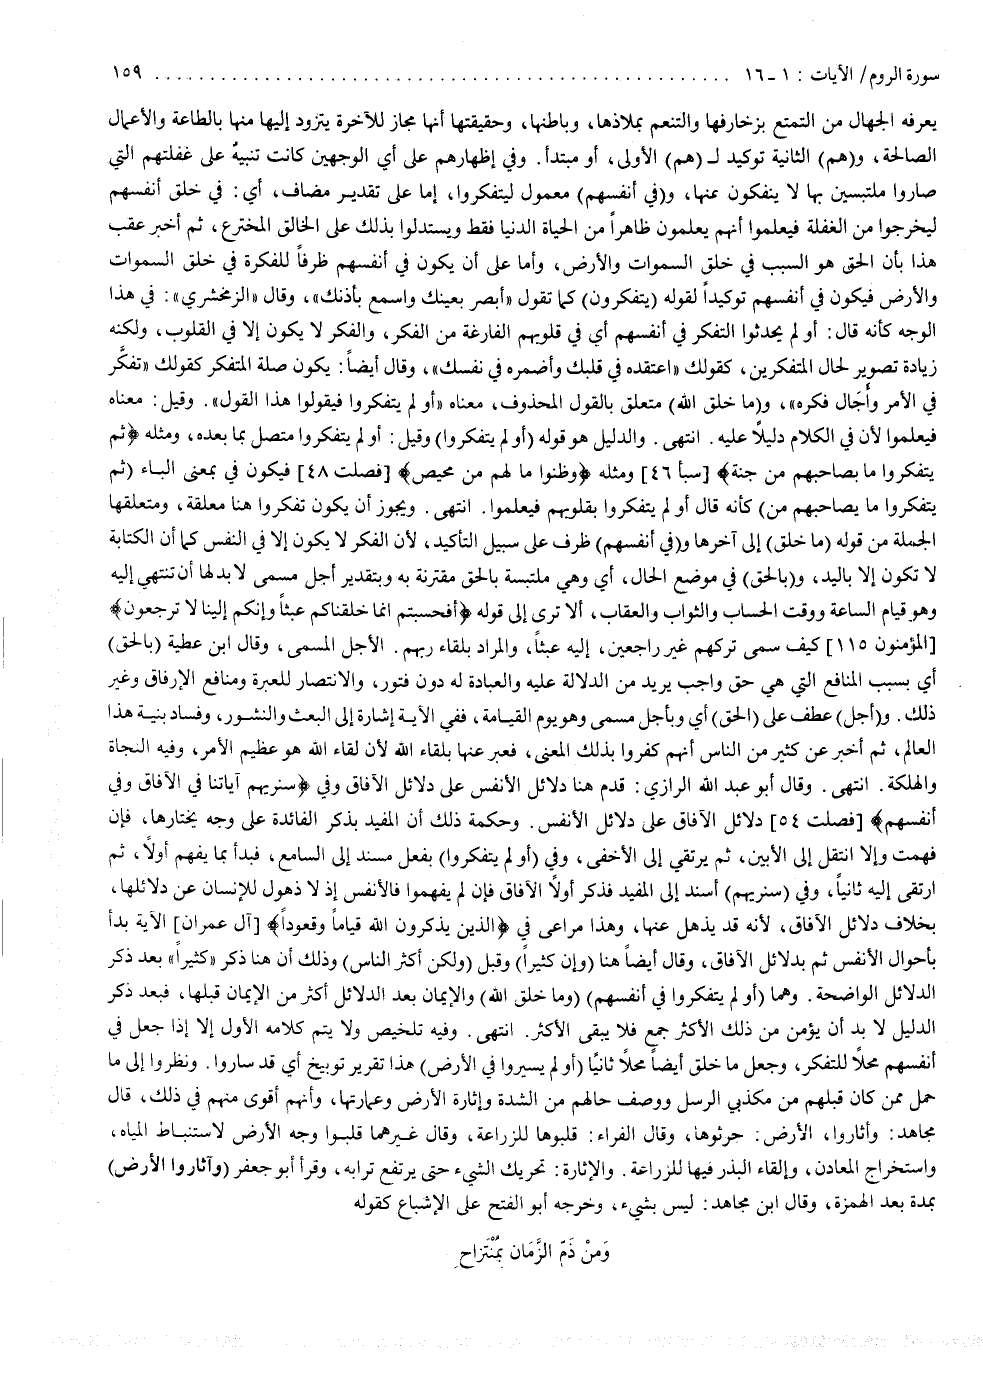 سورة الروم/ الآيات : ١ - ١٦ ........................................................ ١٥٩
يعرفه الجهال من التمتع بزخارفها والتنعم بملاذها، وباطنها، وحقيقتها أنها مجاز للآخرة يتزود إليها منها بالطاعة والأعمال
الصالحة، و(هم) الثانية توكيد لـ (هم) الأولى، أو مبتدأ. وفي إظهارهم على أي الوجهين كانت تنبيهٌ على غفلتهم التي
صاروا ملتبسين بها لا ينفكون عنها، و(في أنفسهم) معمول ليتفكروا، إما على تقدير مضاف، أي: في خلق أنفسهم
ليخرجوا من الغفلة فيعلموا أنهم يعلمون ظاهراً من الحياة الدنيا فقط ويستدلوا بذلك على الخالق المخترع، ثم أخبر عقب
هذا بأن الحق هو السبب في خلق السموات والأرض، وأما على أن يكون في أنفسهم ظرفاً للفكرة في خلق السموات
والأرض فيكون في أنفسهم توكيداً لقوله (يتفكرون) كما تقول «أبصر بعينك واسمع بأذنك»، وقال «الزمخشري»: في هذا
الوجه كأنه قال: أو لم يحدثوا التفكر في أنفسهم أي في قلوبهم الفارغة من الفكر، والفكر لا يكون إلا في القلوب، ولكنه
زيادة تصوير لحال المتفكرين، كقولك «اعتقده في قلبك وأضمره في نفسك»، وقال أيضاً: يكون صلة المتفكر كقولك «تفكَّر
في الأمر وأَجَال فكره»، و(ما خلق الله) متعلق بالقول المحذوف، معناه «أو لم يتفكروا فيقولوا هذا القول». وقيل: معناه
فيعلموا لأن في الكلام دليلاً عليه. انتهى. والدليل هو قوله (أو لم يتفكروا) وقيل: أو لم يتفكروا متصل بما بعده، ومثله ﴿ثم
يتفكروا ما بصاحبهم من جنة﴾ [سبأ ٤٦] ومثله ﴿وظنوا ما لهم من محيص﴾ [فصلت ٤٨] فيكون في بمعنى الباء (ثم
يتفكروا ما يصاحبهم من) كأنه قال أو لم يتفكروا بقلوبهم فيعلموا. انتهى. ويجوز أن يكون تفكروا هنا معلقة، ومتعلقها
الجملة من قوله (ما خلق) إلى آخرها و(في أنفسهم) ظرف على سبيل التأكيد، لأن الفكر لا يكون إلا في النفس كما أن الكتابة
لا تكون إلا باليد، و(بالحق) في موضع الحال، أي وهي ملتبسة بالحق مقترنة به وبتقدير أجل مسمى لا بد لها أن تنتهي إليه
وهو قيام الساعة ووقت الحساب والثواب والعقاب، ألا ترى إلى قوله ﴿أفحسبتم انما خلقناكم عبثاً وإنكم إلينا لا ترجعون﴾
[المؤمنون ١١٥] كيف سمى تركهم غير راجعين، إليه عبثاً، والمراد بلقاء ربهم. الأجل المسمى، وقال ابن عطية (بالحق)
أي بسبب المنافع التي هي حق واجب يريد من الدلالة عليه والعبادة له دون فتور، والانتصار للعبرة ومنافع الإرفاق وغير
ذلك. و(أجل) عطف على (الحق) أي وبأجل مسمى وهو يوم القيامة، ففي الآية إشارة إلى البعث والنشور، وفساد بنية هذا
العالم، ثم أخبر عن كثير من الناس أنهم كفروا بذلك المعنى، فعبر عنها بلقاء الله لأن لقاء الله هو عظيم الأمر، وفيه النجاة
والهلكة. انتهى. وقال أبو عبد الله الرازي: قدم هنا دلائل الأنفس على دلائل الآفاق وفي ﴿سنريهم آياتنا في الآفاق وفي
أنفسهم﴾ [فصلت ٥٤] دلائل الآفاق على دلائل الأنفس. وحكمة ذلك أن المفيد بذكر الفائدة على وجه يختارها، فإن
فهمت وإلا انتقل إلى الأبين، ثم يرتقي إلى الأخفى، وفي (أو لم يتفكروا) بفعل مسند إلى السامع، فبدأ بما يفهم أولاً، ثم
ارتقى إليه ثانياً، وفي (سنريهم) أسند إلى المفيد فذكر أولاً الآفاق فإن لم يفهموا فالأنفس إذ لا ذهول للإنسان عن دلائلها،
بخلاف دلائل الآفاق، لأنه قد يذهل عنها، وهذا مراعى في ﴿الذين يذكرون الله قياماً وقعوداً﴾ [آل عمران] الآية بدأ
بأحوال الأنفس ثم بدلائل الآفاق، وقال أيضاً هنا (وإن كثيراً) وقبل (ولكن أكثر الناس) وذلك أن هنا ذكر «كثيراً» بعد ذكر
الدلائل الواضحة. وهما (أو لم يتفكروا في أنفسهم) (وما خلق الله) والإيمان بعد الدلائل أكثر من الإيمان قبلها، فبعد ذكر
الدليل لا بد أن يؤمن من ذلك الأكثر جمع فلا يبقى الأكثر. انتهى. وفيه تلخيص ولا يتم كلامه الأول إلا إذا جعل في
أنفسهم محلاً للتفكر، وجعل ما خلق أيضاً محلاً ثانيًا (أو لم يسيروا في الأرض) هذا تقرير توبيخ أي قد ساروا. ونظروا إلى ما
حمل ممن كان قبلهم من مكذبي الرسل ووصف حالهم من الشدة وإثارة الأرض وعمارتها، وأنهم أقوى منهم في ذلك، قال
مجاهد: وأثاروا، الأرض: حرثوها، وقال الفراء: قلبوها للزراعة، وقال غيرهما قلبوا وجه الأرض لاستنباط المياه،
واستخراج المعادن، وإلقاء البذر فيها للزراعة. والإثارة: تحريك الشيء حتى يرتفع ترابه، وقرأ أبو جعفر (وآثاروا الأرض)
بمدة بعد الهمزة، وقال ابن مجاهد: ليس بشيء، وخرجه أبو الفتح على الإشباع كقوله
وَمِنْ ذَمّ الزَّمَان بُمُنْتَزاحِ